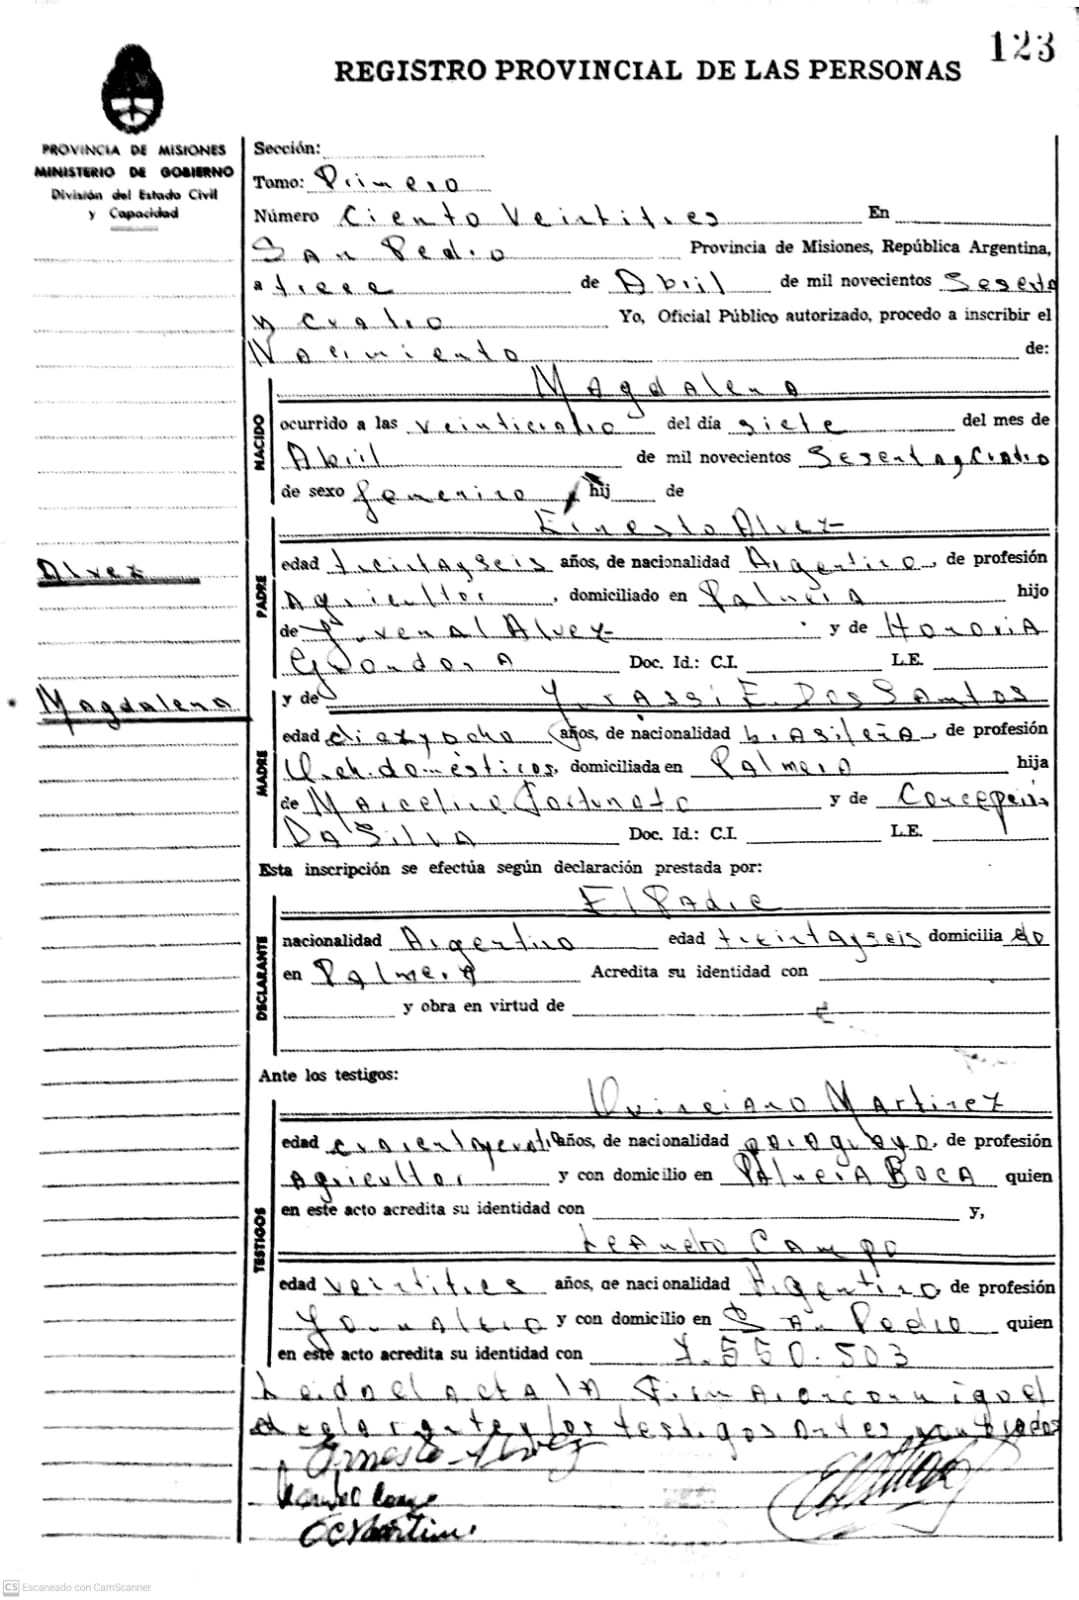 123
REGISTRO PROVINCIAL DE LAS PERSONAS
PROVINCIA DE MISIONES
MINISTERIO DE GOBIERNO
División del Estado Civil
y Capacidad
Sección:
Tomo: Primero
Número Ciento Veintitres En
San Pedro Provincia de Misiones, República Argentina,
a trece de Abril de mil novecientos Sesenta
y Cuatro Yo, Oficial Público autorizado, procedo a inscribir el
Nacimiento de:
NACIDO
Magdalena
ocurrido a las veinticuatro del día siete del mes de
Abril de mil novecientos Sesentaycuatro
de sexo femenino hij de
PADRE
Ernesto Alvez
Alvez
edad treintayseis años, de nacionalidad Argentino, de profesión
Agricultor, domiciliado en Palmera hijo
de Juvenal Alvez y de Honoria
Doc. Id.: C.I. L.E.
Magdalena
MADRE
y de E. Dos Santos
edad diezyocho años, de nacionalidad brasileña, de profesión
Q.eh.domésticos, domiciliada en Palmera hija
de Marcelino Fortunato y de Concepción
Da Silva Doc. Id.: C.I. L.E.
Esta inscripción se efectúa según declaración prestada por:
DECLARANTE
El Padre
nacionalidad Argentino edad treintayseis domicilia do
en Palmera Acredita su identidad con
y obra en virtud de
Ante los testigos:
TESTIGOS
Quinciano Martinez
edad años, de nacionalidad paraguayo, de profesión
Agricultor y con domicilio en Palmera Boca quien
en este acto acredita su identidad con y,
Leandro Campo
edad veintitres años, de nacionalidad Argentino de profesión
y con domicilio en San Pedro quien
en este acto acredita su identidad con 7.550.503
Leido el acta la firman con migo el
declarante y los testigos antes nombrados
Ernesto Alvez
CS Escaneado con CamScanner